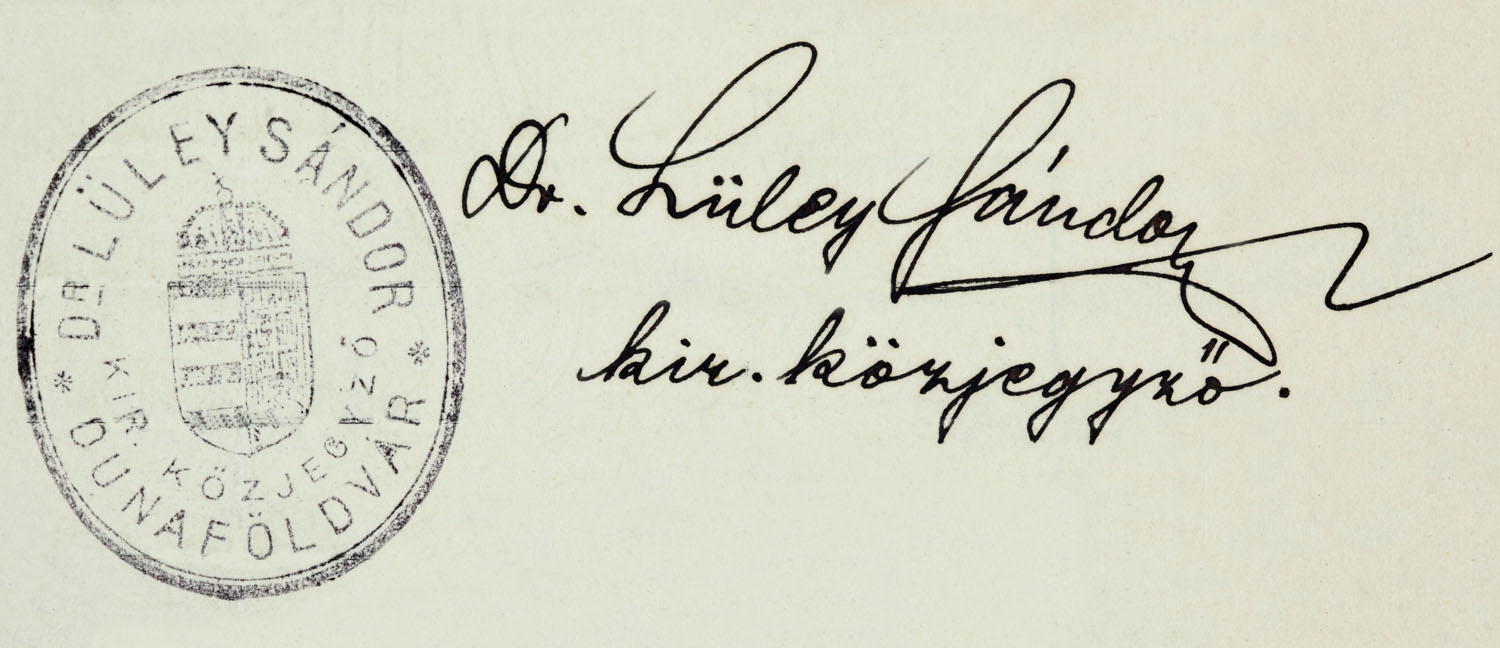 DR LÜLEY SÁNDOR
* DUNAFÖLDVÁR *
KIR. KÖZJEGYZŐ
Dr. Lüley Sándor
kir. közjegyző.